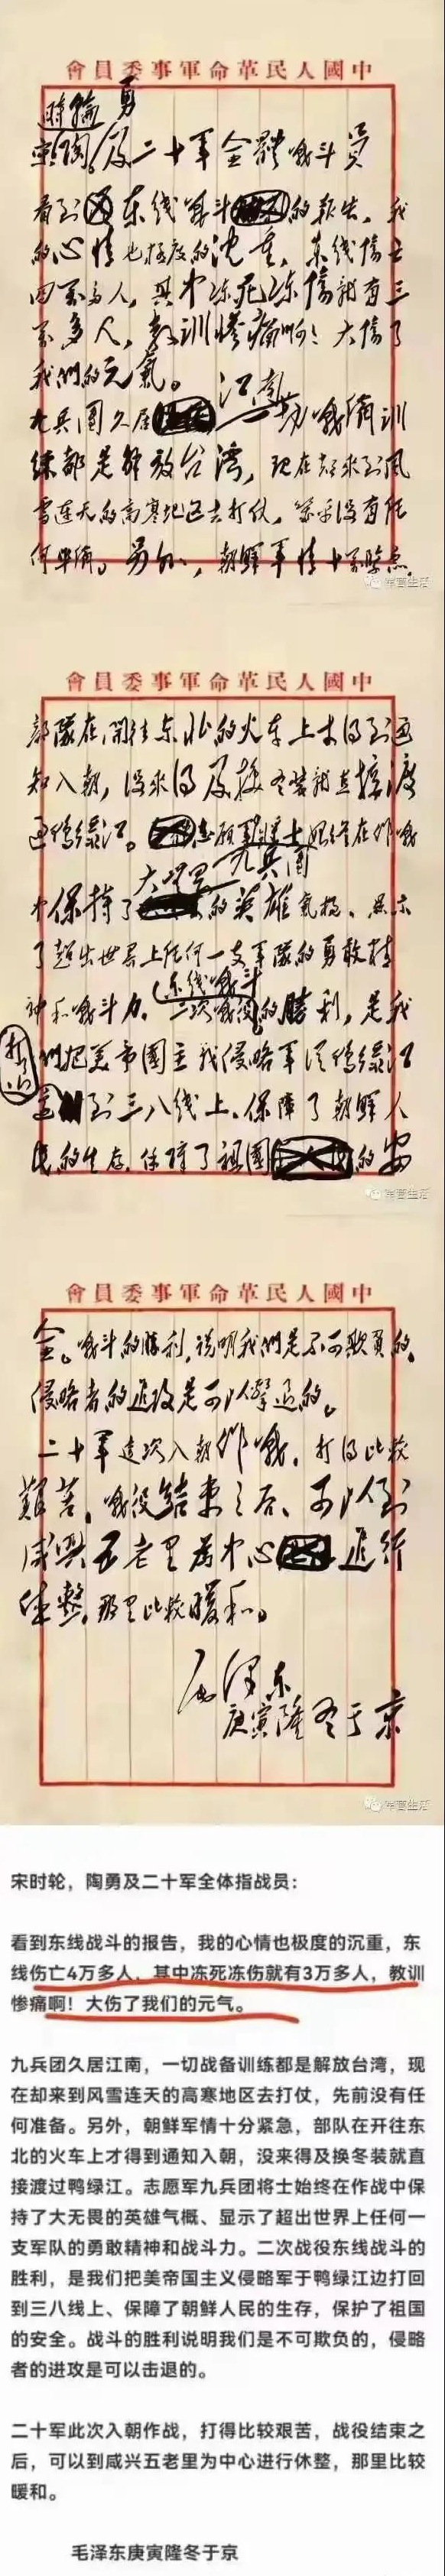 會員委事軍命革民人國中
时轮 勇
宋陶及二十军全體战斗员
看到东线战斗的报告，我
的心情也极度的沈重，东线傷亡
四萬多人，其中冻死冻傷就有三
萬多人，教訓惨痛啊！大傷了
我們的元氣。
九兵團久居江南一切战備訓
练都是解放台湾，现在却来到风
雪連天的高寒地区去打仗，
何準備。另外，朝鲜軍情十
军营生活
會員委事軍命革民人國中
部隊在開往东北的火车上才得到通
知入朝，没来得及换冬装就直接渡
过鸭绿江。志愿軍九兵團将士始终在作战
中保持了大無畏的英雄氣概、显示
了超出世界上任何一支軍隊的勇敢精
神和战斗力。二次战役东线战斗的勝利，是我
們把美帝國主義侵略军从鸭绿江
打回到三八线上、保障了朝鲜人
民的生存，保障了祖國的安
军营生活
會員委事軍命革民人國中
全。战斗的勝利，说明我們是不可欺負的，
侵略者的進攻是可以擊退的。
二十軍這次入朝作战，打得比较
艱苦，战役结束之后，可以到
咸興五老里為中心進行
休整，那里比较暖和。
毛泽东
庚寅隆冬于京
军营生活
宋时轮，陶勇及二十军全体指战员：
看到东线战斗的报告，我的心情也极度的沉重，东
线伤亡4万多人，其中冻死冻伤就有3万多人，教训
惨痛啊！大伤了我们的元气。
九兵团久居江南，一切战备训练都是解放台湾，现
在却来到风雪连天的高寒地区去打仗，先前没有任
何准备。另外，朝鲜军情十分紧急，部队在开往东
北的火车上才得到通知入朝，没来得及换冬装就直
接渡过鸭绿江。志愿军九兵团将士始终在作战中保
持了大无畏的英雄气概、显示了超出世界上任何一
支军队的勇敢精神和战斗力。二次战役东线战斗的
胜利，是我们把美帝国主义侵略军于鸭绿江边打回
到三八线上、保障了朝鲜人民的生存，保护了祖国
的安全。战斗的胜利说明我们是不可欺负的，侵略
者的进攻是可以击退的。
二十军此次入朝作战，打得比较艰苦，战役结束之
后，可以到咸兴五老里为中心进行休整，那里比较
暖和。
毛泽东庚寅隆冬于京